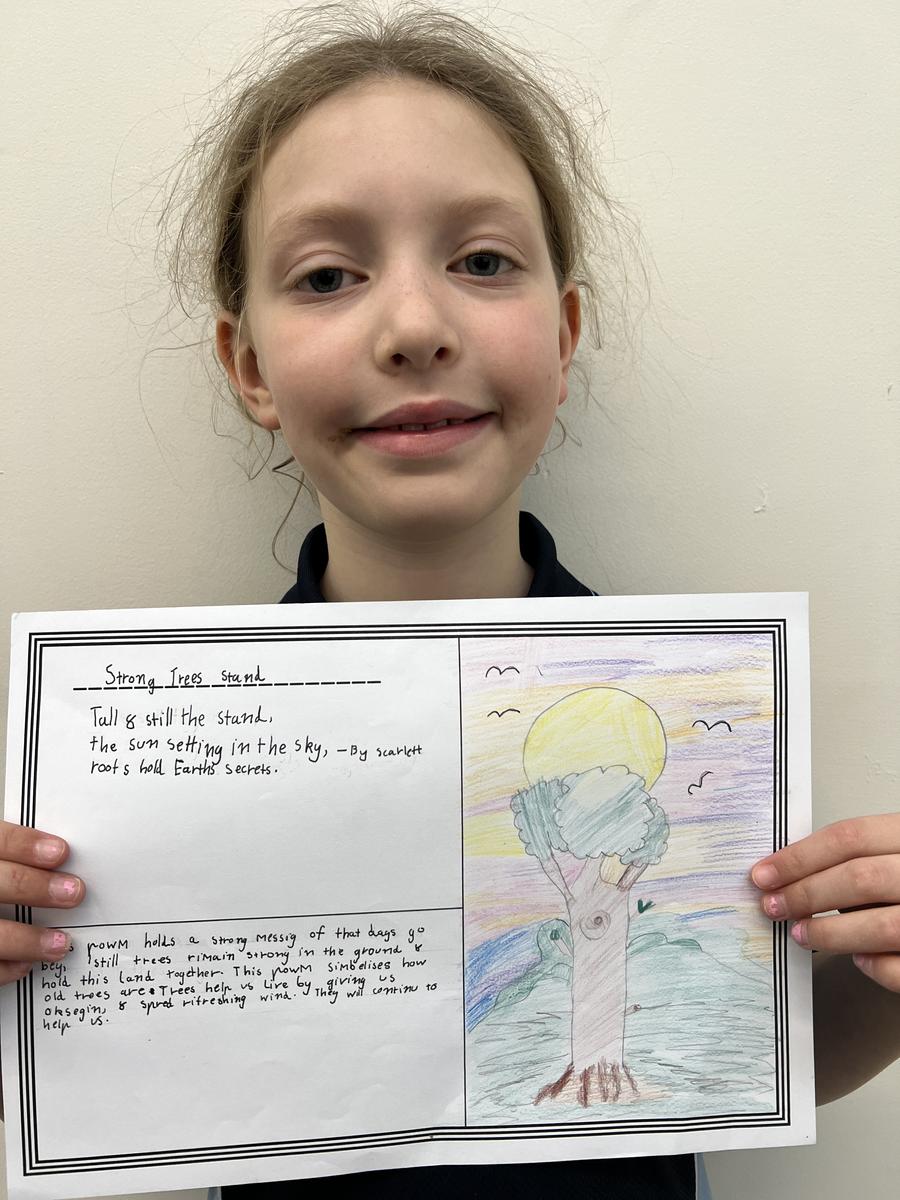 Strong Trees Stand
Tall & still the stand,
the sun setting in the sky, - By Scarlett
roots hold Earths secrets.
powm holds a strong messig of that days go
bey, still trees rimain strong in the ground &
hold this land together. This powm simbelises how
old trees are. Trees help us live by giving us
oksegin, & spred rifreshing wind. They will continu to
help us.